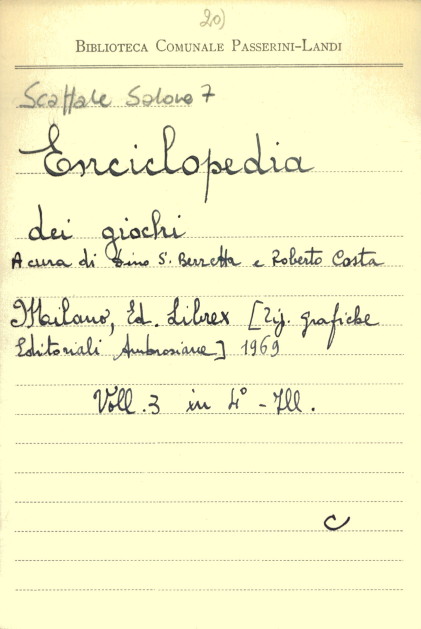 20)
BIBLIOTECA COMUNALE PASSERINI-LANDI
Scaffale Salone 7
Enciclopedia
dei giochi
A cura di Dino S. Berretta e Roberto Costa
Milano, Ed. Librex [Tip. grafiche
Editoriali Ambrosiane] 1969
Voll. 3 in 4° - Ill.
C